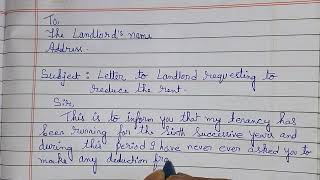 To,
The Landlord's name
Address.
Subject : Letter to Landlord requesting to
reduce the rent.
Sir,
This is to inform you that my tenancy has
been running for the sixth successive years and
during this period I have never ever asked you to
make any deduction fro